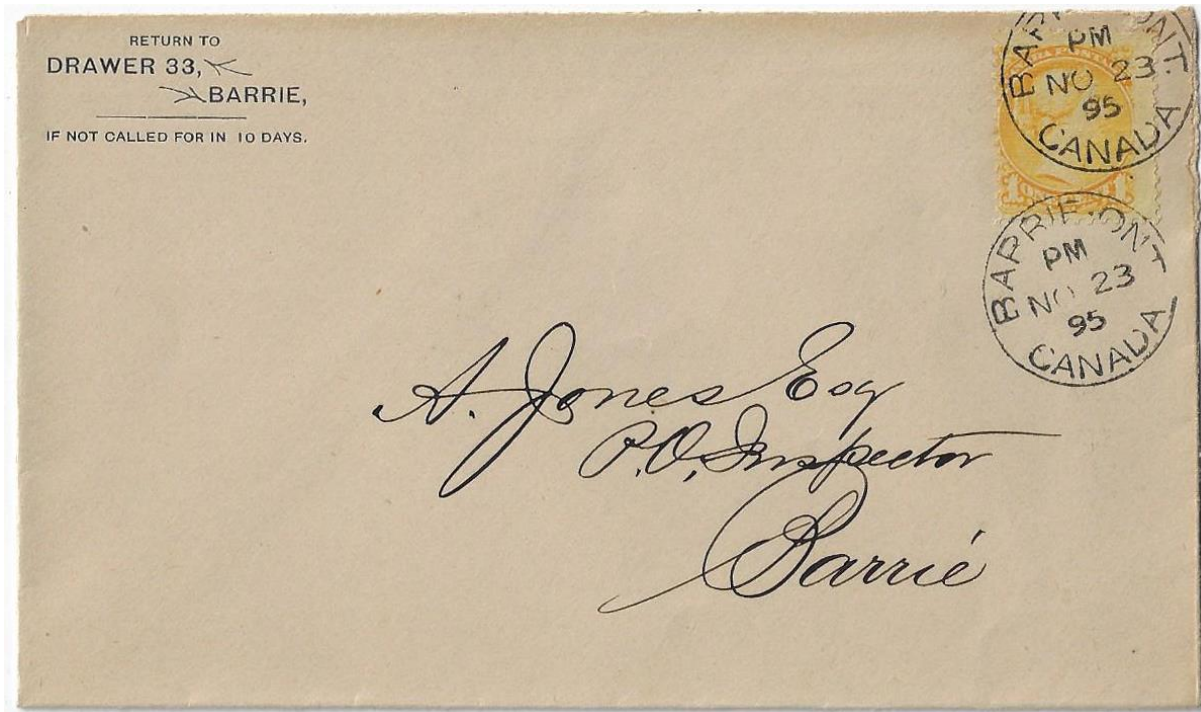 RETURN TO
DRAWER 33,
BARRIE,
IF NOT CALLED FOR IN 10 DAYS.
BARRIE·ONT
PM
NO 23
95
CANADA
1 1
BARRIE·ONT
PM
NO 23
95
CANADA
A. Jones Esq
P.O. Inspector
Barrie